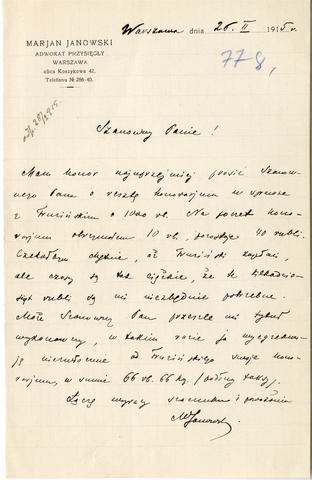 MARJAN JANOWSKI
ADWOKAT PRZYSIĘGŁY
WARSZAWA
ulica Koszykowa 42.
Telefonu № 286-40.
Warszawa dnia 26. II 1915 r.
778,
28/II 915.
Szanowny Panie!
Mam honor najuprzejmiej prosić Szanow-
nego Pana o resztę honorarjum w sprawie
z Trusińskim o 1000 rb. Na poczet hono-
rarjum otrzymałem 10 rb., pozostaje 40 rubli.
Czekałbym chętnie, aż Trusiński zapłaci,
ale czasy są tak ciężkie, że te kilkadzie-
siąt rubli są mi niezbędnie potrzebne.
Może Szanowny Pan prześle mi tytuł
wykonawczy, w takim razie ja wyegzekwu-
ję niezwłocznie od Trusińskiego swoje hono-
rarjum, w sumie 66 rb. 66 kop. (podług taksy).
Łączę wyrazy szacunku i poważania
MJanowski